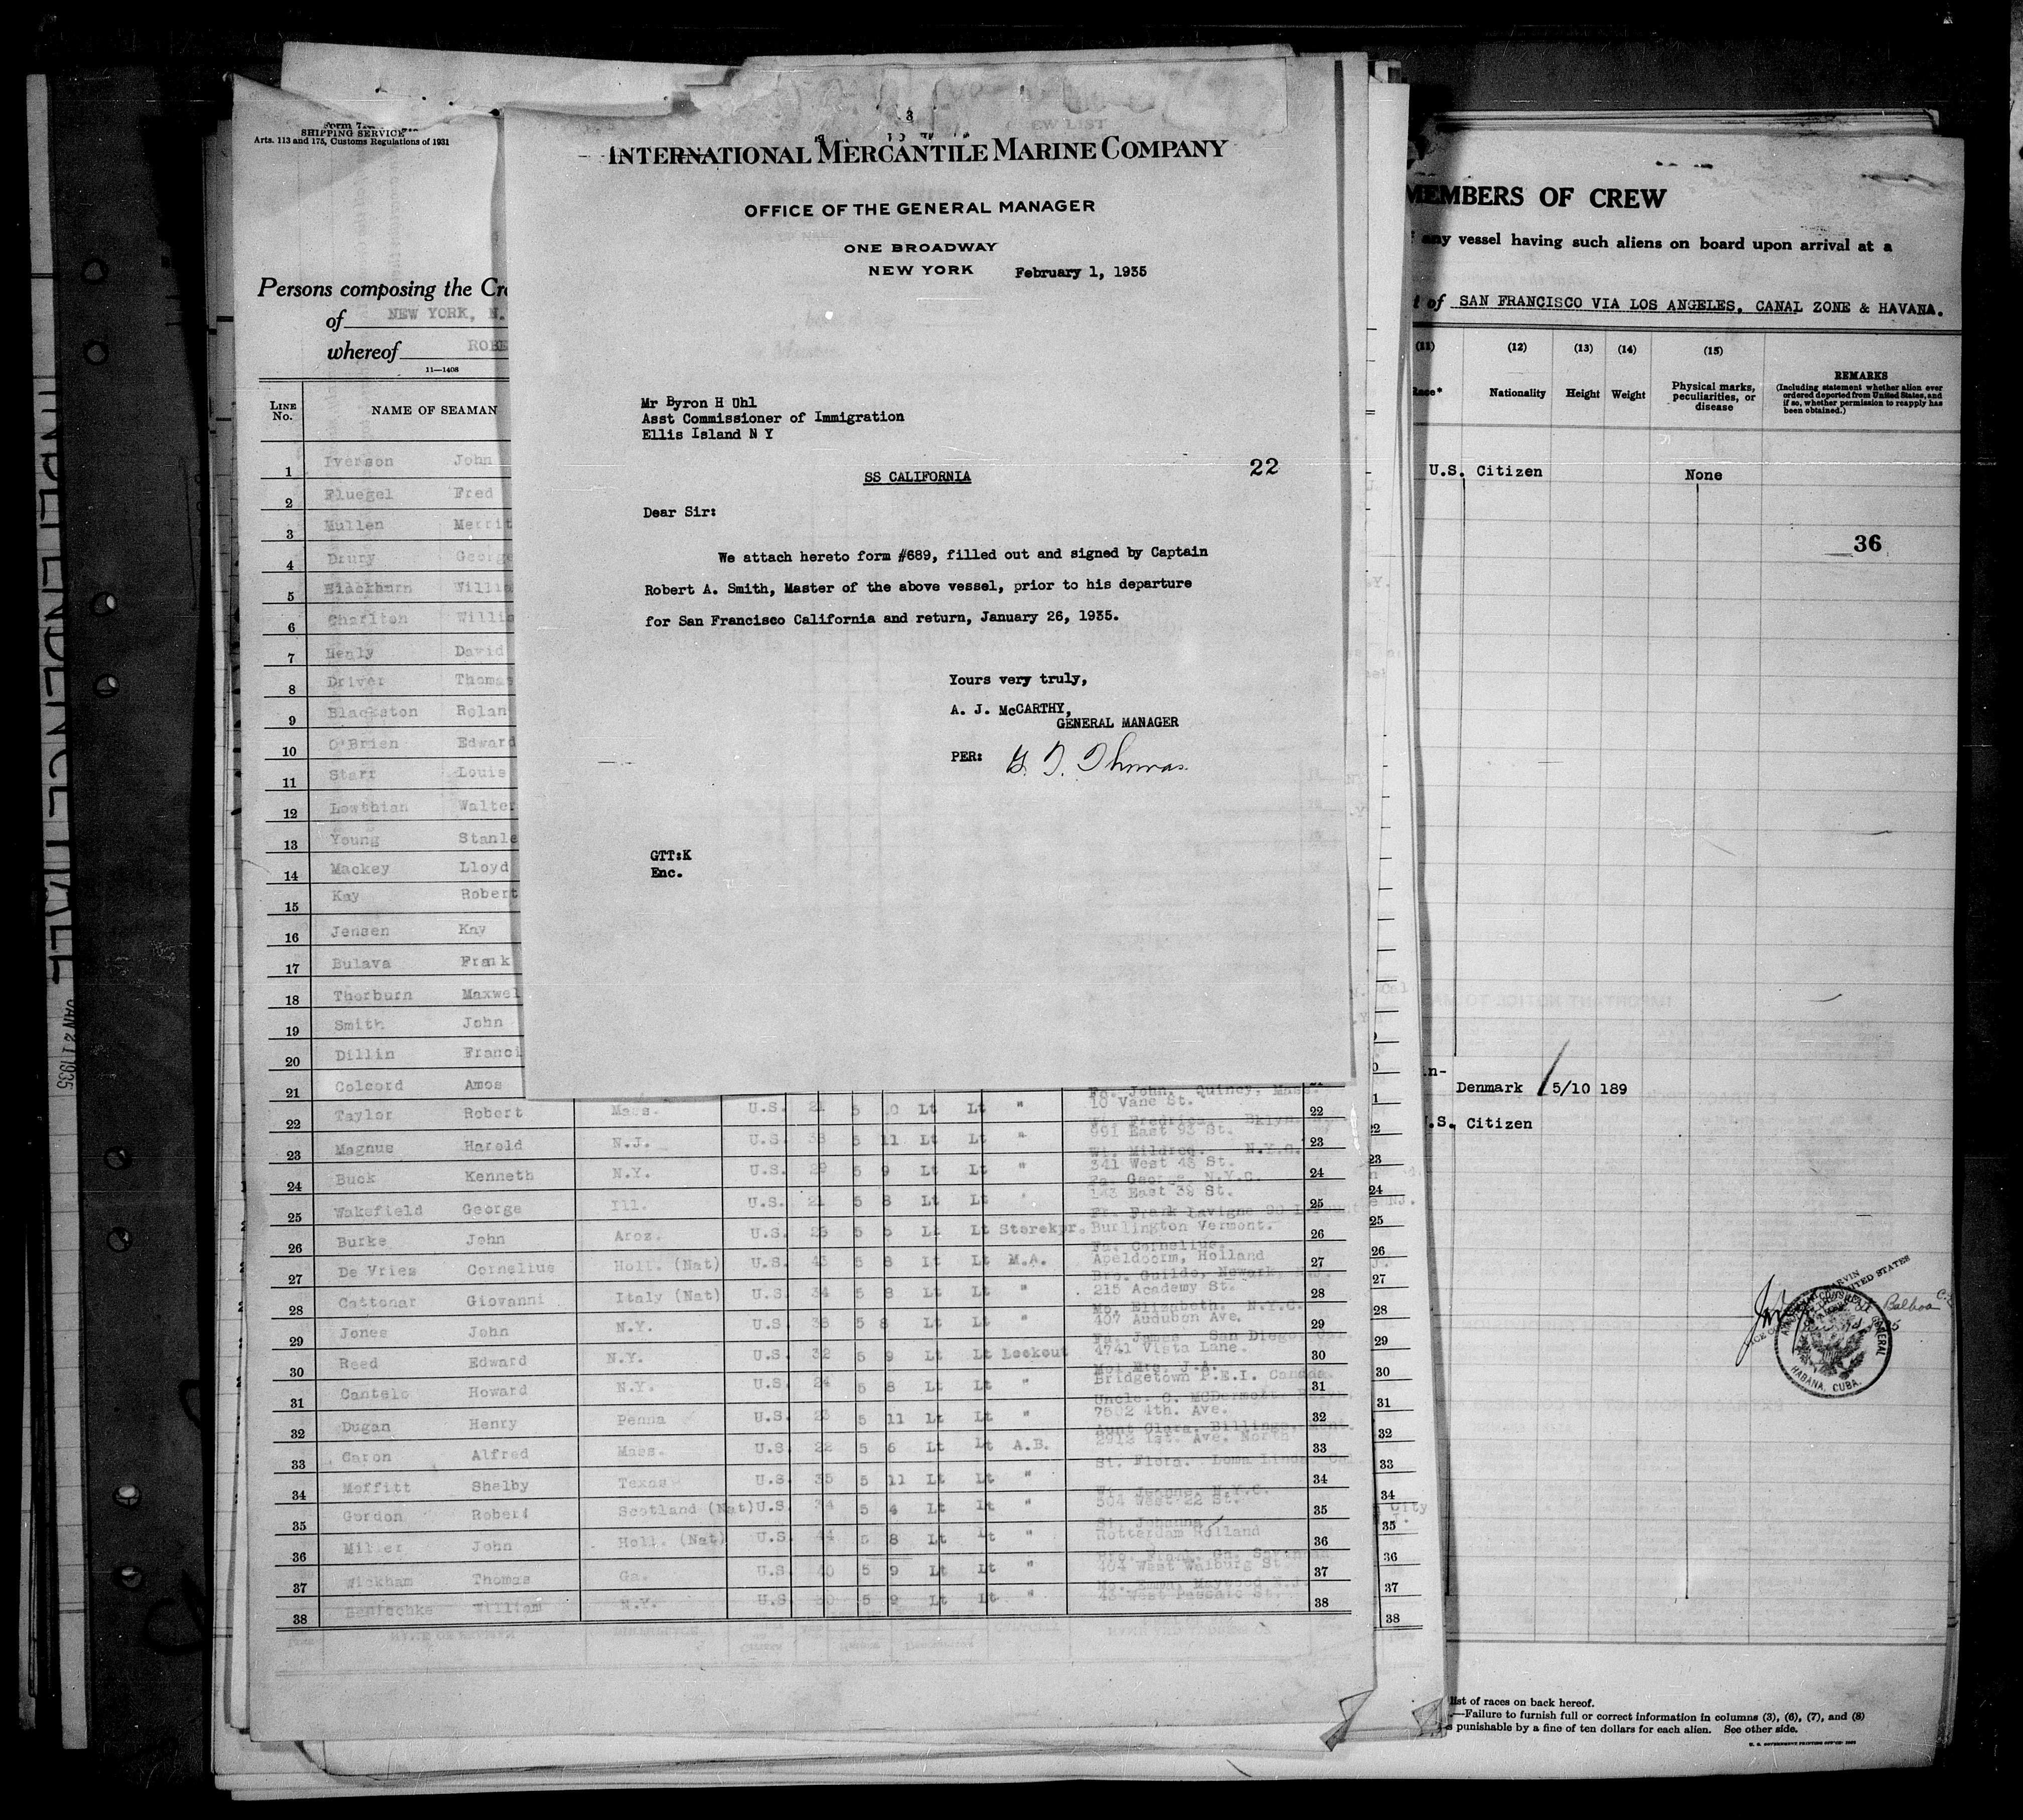 INDEPENDENCE HALL
JAN 21 1935
SHIPPING SERVICE
Arts. 113 and 175, Customs Regulations of 1931
Persons composing the Cr
of NEW YORK, N.
whereof ROBE
11—1408
LINE No.
NAME OF SEAMAN
1 Iverson John
2 Fluegel Fred
3 Mullen Merrit
4 Drury George
5 Blackburn Willi
6 Charlton Willi
7 Healy David
8 Driver Thomas
9 Blackston Rolan
10 O'Brien Edward
11 Starr Louis
12 Lowthian Walter
13 Young Stanle
14 Mackey Lloyd
15 Kay Robert
16 Jensen Kay
17 Bulava Frank
18 Thorburn Maxwel
19 Smith John
20 Dillin Franci
21 Colcord Amos
Fa. John, Quincy, Mass.
22 Taylor Robert Mass. U.S. 21 5 10 Lt Lt " 10 Vane St. 22
23 Magnus Harold N.J. U.S. 38 5 11 Lt Lt " 991 East 93 St. 23
Wi. Mildred. N.Y.C.
24 Buck Kenneth N.Y. U.S. 29 5 9 Lt Lt " 341 West 45 St. 24
Fa. George N.Y.C.
25 Wakefield George Ill. U.S. 21 5 8 Lt Lt " 143 East 39 St. 25
26 Burke John Aroz. U.S. 25 5 5 Lt Lt Storekpr. Burlington Vermont. 26
Fa. Cornelius.
27 De Vries Cornelius Holl. (Nat) U.S. 43 5 8 Lt Lt M.A. Apeldoorm, Holland 27
Bro. Guildo, Newark,
28 Cattonar Giovanni Italy (Nat) U.S. 34 5 8 Lt Lt " 215 Academy St. 28
Mo. Elizabeth. N.Y.C.
29 Jones John N.Y. U.S 38 5 8 Lt Lt " 407 Audubon Ave. 29
Fa. James San Diego,
30 Reed Edward N.Y. U.S 32 5 9 Lt Lt Lookout 4741 Vista Lane. 30
Mo. Mrs. J.A.
31 Cantelo Howard N.Y. U.S 24 5 8 Lt Lt " Bridgetown P.E.I. Canada. 31
Uncle. C. McDermott.
32 Dugan Henry Penna U.S. 23 5 11 Lt Lt " 7502 4th. Ave. 32
Aunt Clara. Billings,
33 Caron Alfred Mass. U.S 22 5 6 Lt Lt A.B. 2912 1st. Ave. North 33
St. Flora. Loma Linda
34 Moffitt Shelby Texas U.S 35 5 11 Lt Lt " 34
Wi. Jeanne, N.Y.C.
35 Gordon Robert Scotland (Nat) U.S. 34 5 4 Lt Lt " 304 West 22 St. 35
36 Miller John Holl. (Nat) U.S. 44 5 8 Lt Lt " Rotterdam Holland 36
37 Wickham Thomas Ga. U.S 40 5 9 Lt Lt " 404 West Walburg St 37
Emma, Maywood N.J.
38 William N.Y. U.S 5 9 Lt Lt " 43 West Passaic St. 38
3
INTERNATIONAL MERCANTILE MARINE COMPANY
OFFICE OF THE GENERAL MANAGER
ONE BROADWAY
NEW YORK February 1, 1935
Mr Byron H Uhl
Asst Commissioner of Immigration
Ellis Island N Y
22
SS CALIFORNIA
Dear Sir:
We attach hereto form #689, filled out and signed by Captain
Robert A. Smith, Master of the above vessel, prior to his departure
for San Francisco California and return, January 26, 1935.
Yours very truly,
A. J. McCARTHY,
GENERAL MANAGER
PER: G. T. Thomas
GTT:K
Enc.
MEMBERS OF CREW
any vessel having such aliens on board upon arrival at a
of SAN FRANCISCO VIA LOS ANGELES, CANAL ZONE & HAVANA.
(11) (12) (13) (14) (15)
Race* Nationality Height Weight Physical marks, peculiarities, or disease
REMARKS
(Including statement whether alien ever ordered deported from United States, and if so, whether permission to reapply has been obtained.)
U.S. Citizen None
36
n-
Denmark 5/10 189
U.S. Citizen
Balboa
HABANA, CUBA.
list of races on back hereof.
—Failure to furnish full or correct information in columns (3), (6), (7), and (8)
s punishable by a fine of ten dollars for each alien. See other side.
U. S. GOVERNMENT PRINTING OFFICE